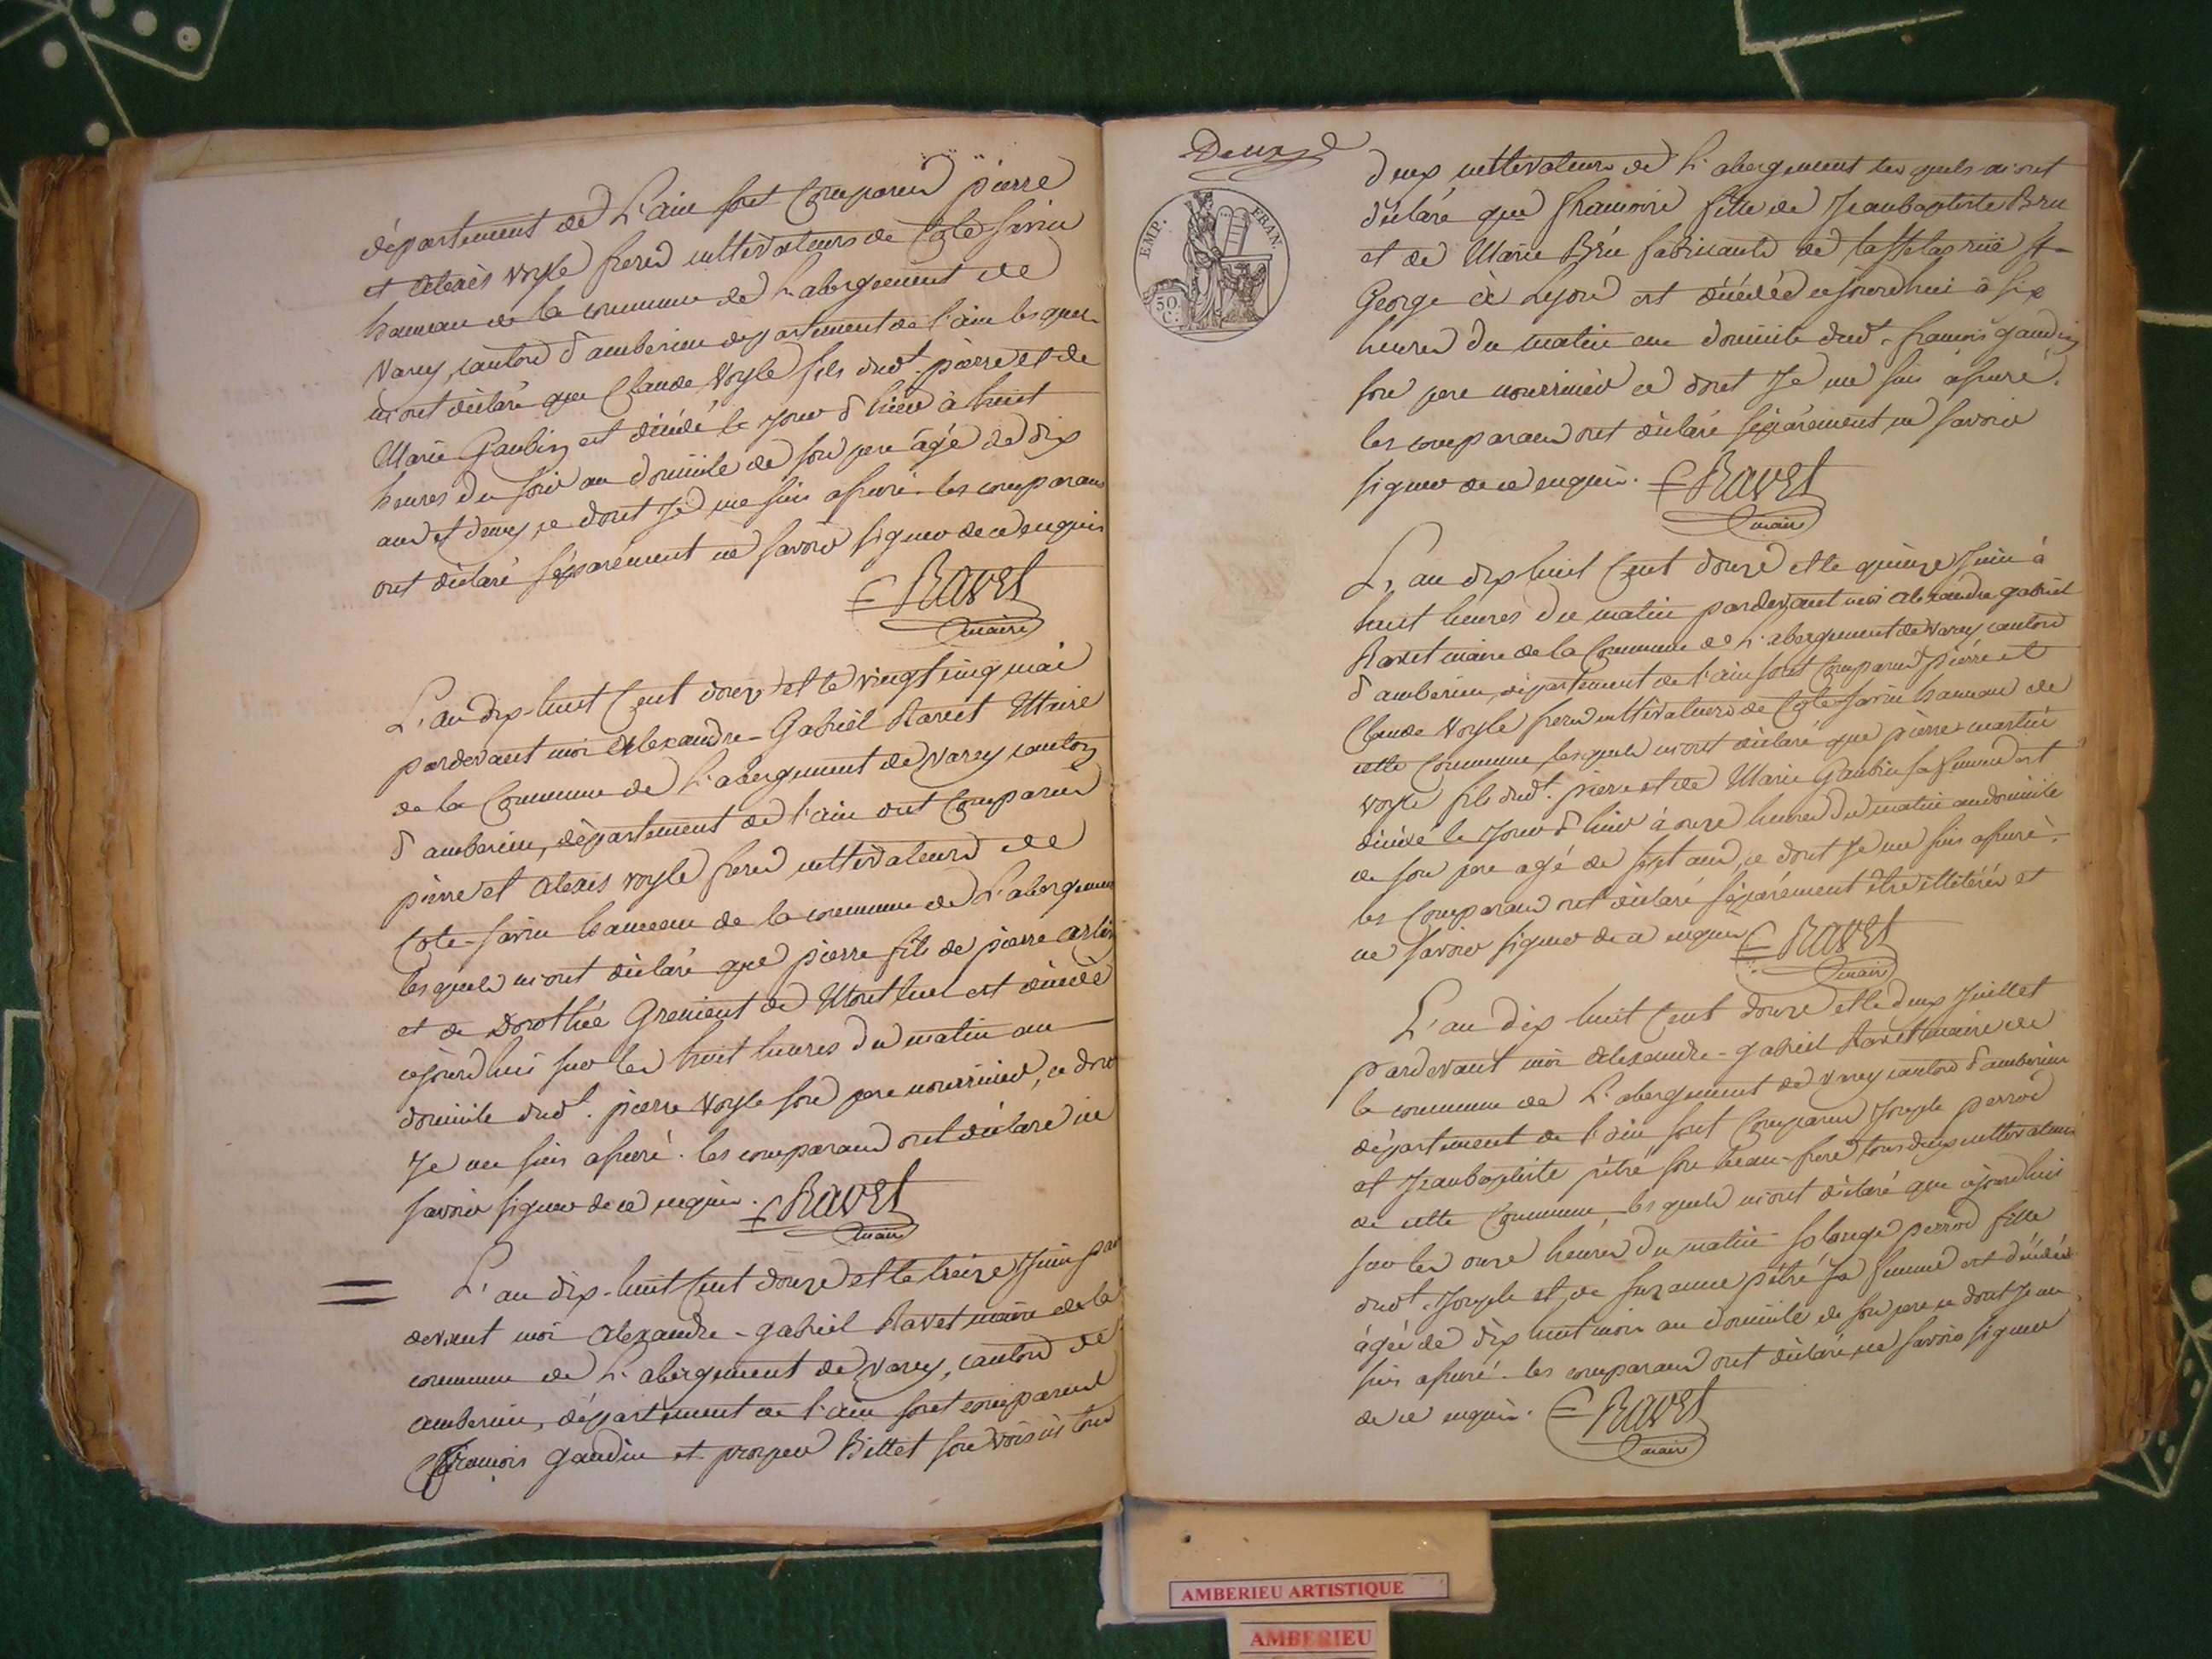 département de L'ain sont Comparus pierre
et alexis voyle freres cultivateurs de Cote Savin
hameau de la commune de L'abergement de
varey, canton d'amberieu departement de l'ain lesquels
m'ont déclaré que Claude Voyle fils dudt. pierre et de
Marie Gaubin est décédé le jour d'hier à huit
heures du soir au domicile de son pere âgé de dix
ans et demy, ce dont Je me suis assuré. les comparans
ont déclaré séparément ne savoir signer de ce enquis
Ravet
maire
L'an dix-huit Cent douze et le vingt cinq mai
pardevant moi Alexandre-Gabriel Ravet Maire
de la Commune de L'abergement de Varey canton
d'amberieu, département de l'ain ont Comparus
pierre et alexis voyle freres cultivateurs de
Cote-Savin hameau de la commune de L'abergement
lesquels m'ont déclaré que pierre fils de pierre
et de Dorothée de Montluel est décédé
cejourdhui sur les huit heures du matin au
domicile dudt. pierre Voyle son pere nourricier, ce dont
Je me suis assuré. les comparans ont déclaré ne
savoir signer de ce enquis. Ravet
maire
L'an dix-huit Cent douze et le treize Juin par
devant moi Alexandre-gabriel Ravet maire de la
commune de L'abergement de Varey, canton de
amberieu, département de l'ain sont comparus
François gaudin et prosper Billet son voisin tous
Deux
EMP. FRAN.
50 C.
deux cultivateurs de L'abergement lesquels m'ont
déclaré que fille de Jeanbaptiste Bru
et de Marie Bru fabricants de rue St
George à Lyon est décédée cejourdhui à six
heures du matin au domicile dudt. francois gaudin
son pere nourricier ce dont Je me suis assuré.
les comparans ont déclaré séparément ne savoir
signer de ce enquis. Ravet
maire
L'an dix huit Cent douze et le quinze Juin à
huit heures du matin pardevant moi alexandre gabriel
Ravet maire de la Commune de L'abergement de Varey canton
d'amberieu, département de l'ain sont Comparus pierre et
Claude Voyle freres cultivateurs de Cote Savin hameau de
cette Commune lesquels m'ont déclaré que pierre martin
voyle fils dudt. pierre et de Marie Gaubin sa femme est
décédé le jour d'hier à onze heures du matin au domicile
de son pere agé de sept ans, ce dont Je me suis assuré.
les Comparans ont déclaré séparément être illitérés et
ne savoir signer de ce enquis Ravet
maire
L'an dix huit Cent douze et le deux Juillet
pardevant moi Alexandre-gabriel Ravet maire de
la commune de L'abergement de Varey canton d'amberieu
département de l'ain sont Comparus Joseph perrod
et Jeanbaptiste pétré son beau-frere tous deux cultivateurs
de cette Commune lesquels m'ont déclaré que cejourdhui
sur les onze heures du matin Solange perrod fille
dudt. Joseph et de Suzanne pétré sa femme est décédée
âgée de dix huit mois au domicile de son pere ce dont Je me
suis assuré. les comparans ont déclaré ne savoir signer
de ce enquis. Ravet
maire
AMBERIEU ARTISTIQUE
AMBERIEU